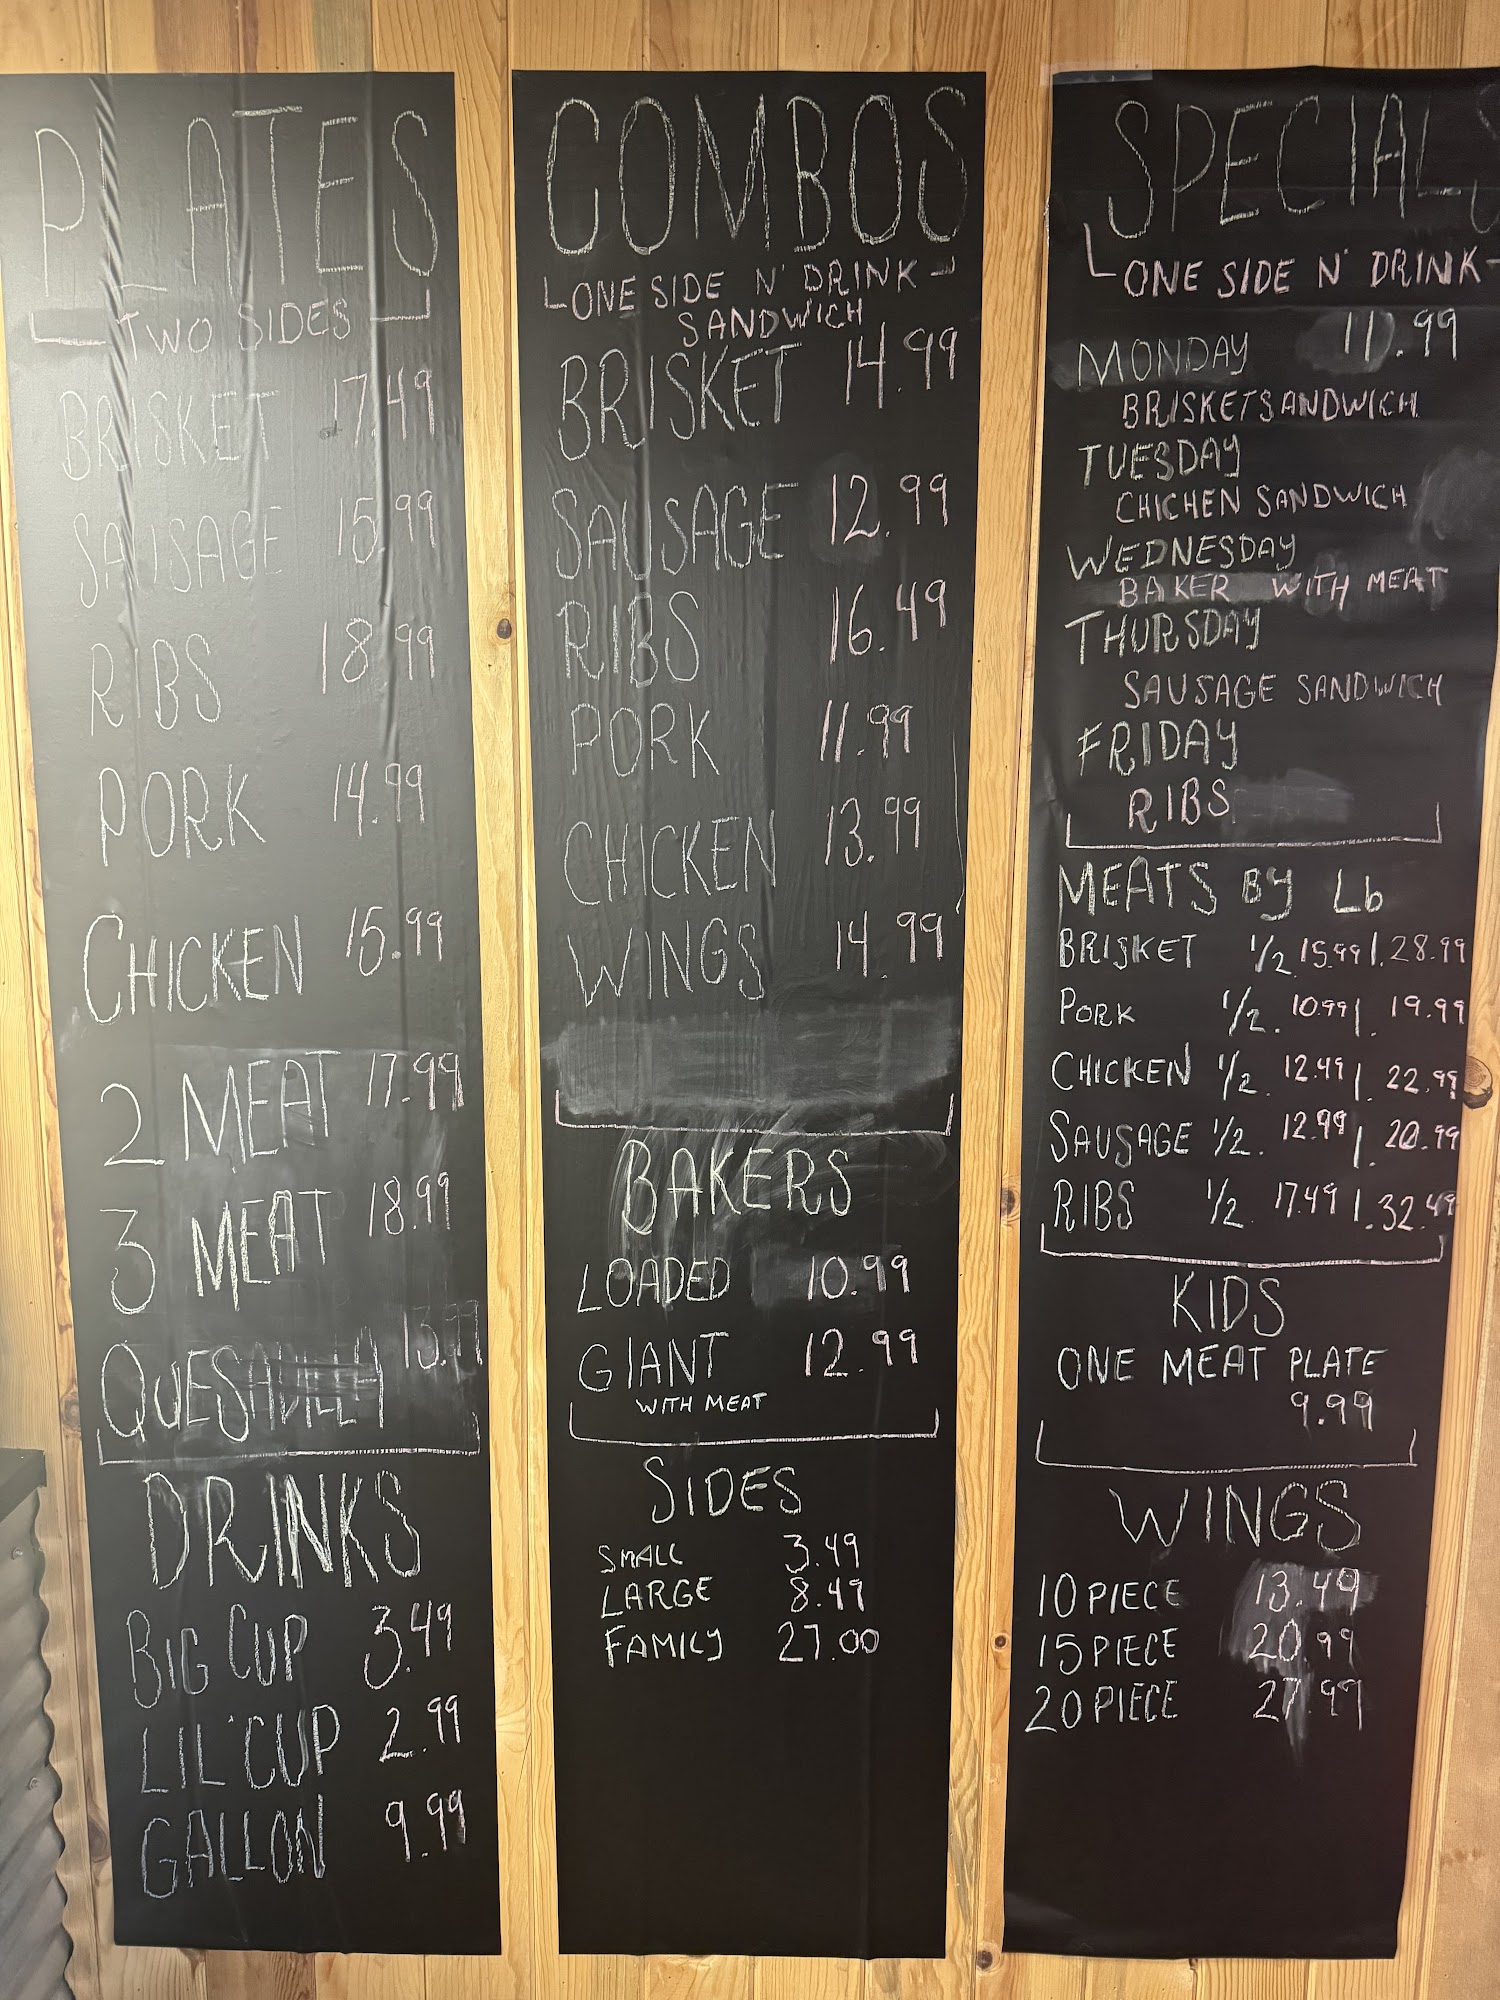 PLATES
TWO SIDES
BRISKET 17.49
SAUSAGE 15.99
RIBS 18.99
PORK 14.99
CHICKEN 15.99
2 MEAT 17.99
3 MEAT 18.99
QUESADILLA 13.99
DRINKS
BIG CUP 3.49
LIL' CUP 2.99
GALLON 9.99
COMBOS
ONE SIDE N' DRINK
SANDWICH
BRISKET 14.99
SAUSAGE 12.99
RIBS 16.49
PORK 11.99
CHICKEN 13.99
WINGS 14.99
BAKERS
LOADED 10.99
GIANT 12.99
WITH MEAT
SIDES
SMALL 3.49
LARGE 8.49
FAMILY 27.00
SPECIALS
ONE SIDE N' DRINK
MONDAY 11.99
BRISKET SANDWICH
TUESDAY
CHICHEN SANDWICH
WEDNESDAY
BAKER WITH MEAT
THURSDAY
SAUSAGE SANDWICH
FRIDAY
RIBS
MEATS BY Lb
BRISKET 1/2. 15.99 1. 28.99
PORK 1/2. 10.99 1. 19.99
CHICKEN 1/2. 12.49 1. 22.99
SAUSAGE 1/2. 12.99 1. 20.99
RIBS 1/2. 17.49 1. 32.49
KIDS
ONE MEAT PLATE
9.99
WINGS
10 PIECE 13.49
15 PIECE 20.99
20 PIECE 27.99